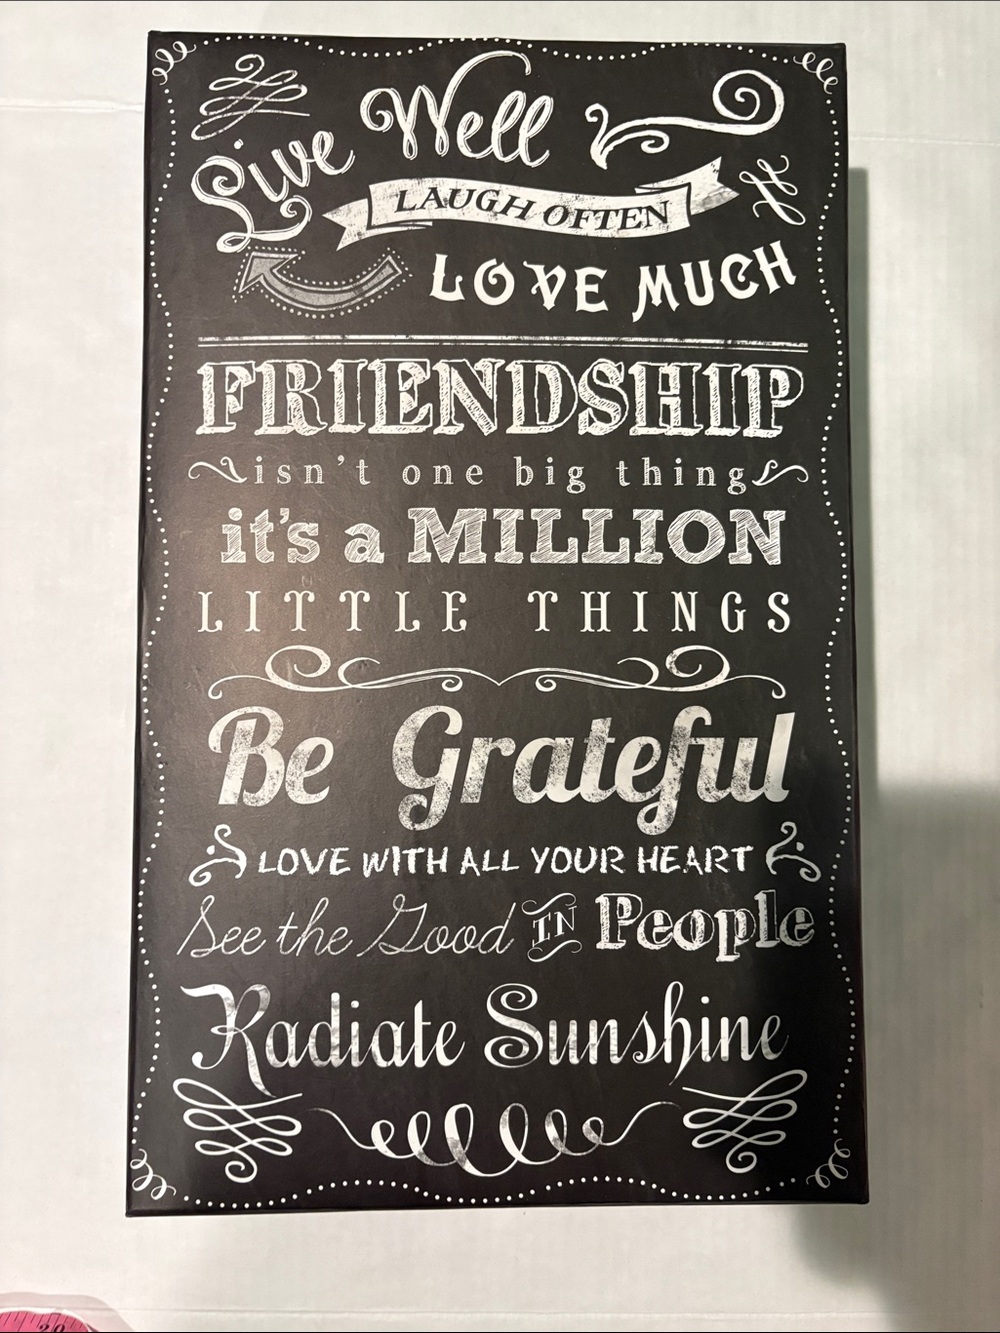 Live Well
LAUGH OFTEN
LOVE MUCH
FRIENDSHIP
isn't one big thing
it's a MILLION
LITTLE THINGS
Be Grateful
LOVE WITH ALL YOUR HEART
See the Good IN People
Radiate Sunshine
20